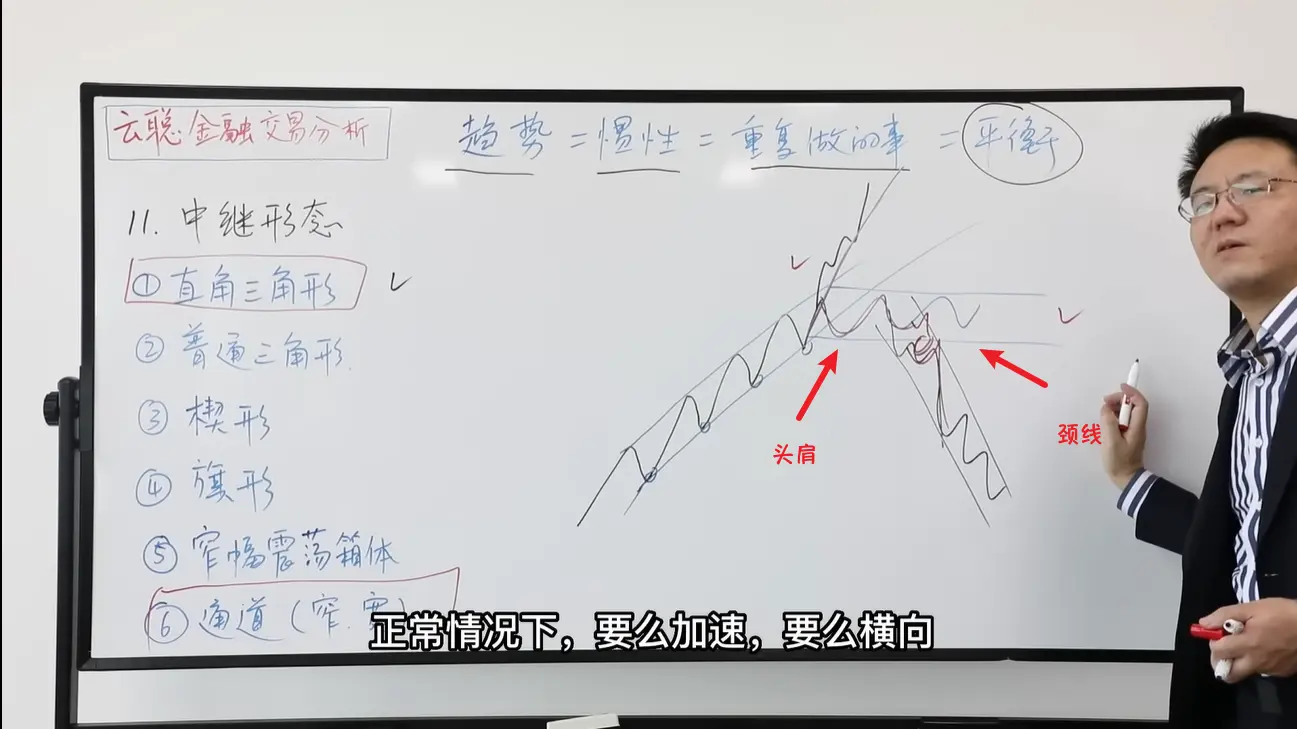 云聪金融交易分析
趋势 = 惯性 = 重复做的事 = 平衡
11. 中继形态
① 直角三角形
② 普通三角形
③ 楔形
④ 旗形
⑤ 窄幅震荡箱体
⑥ 通道（窄.宽）
头肩
颈线
正常情况下，要么加速，要么横向